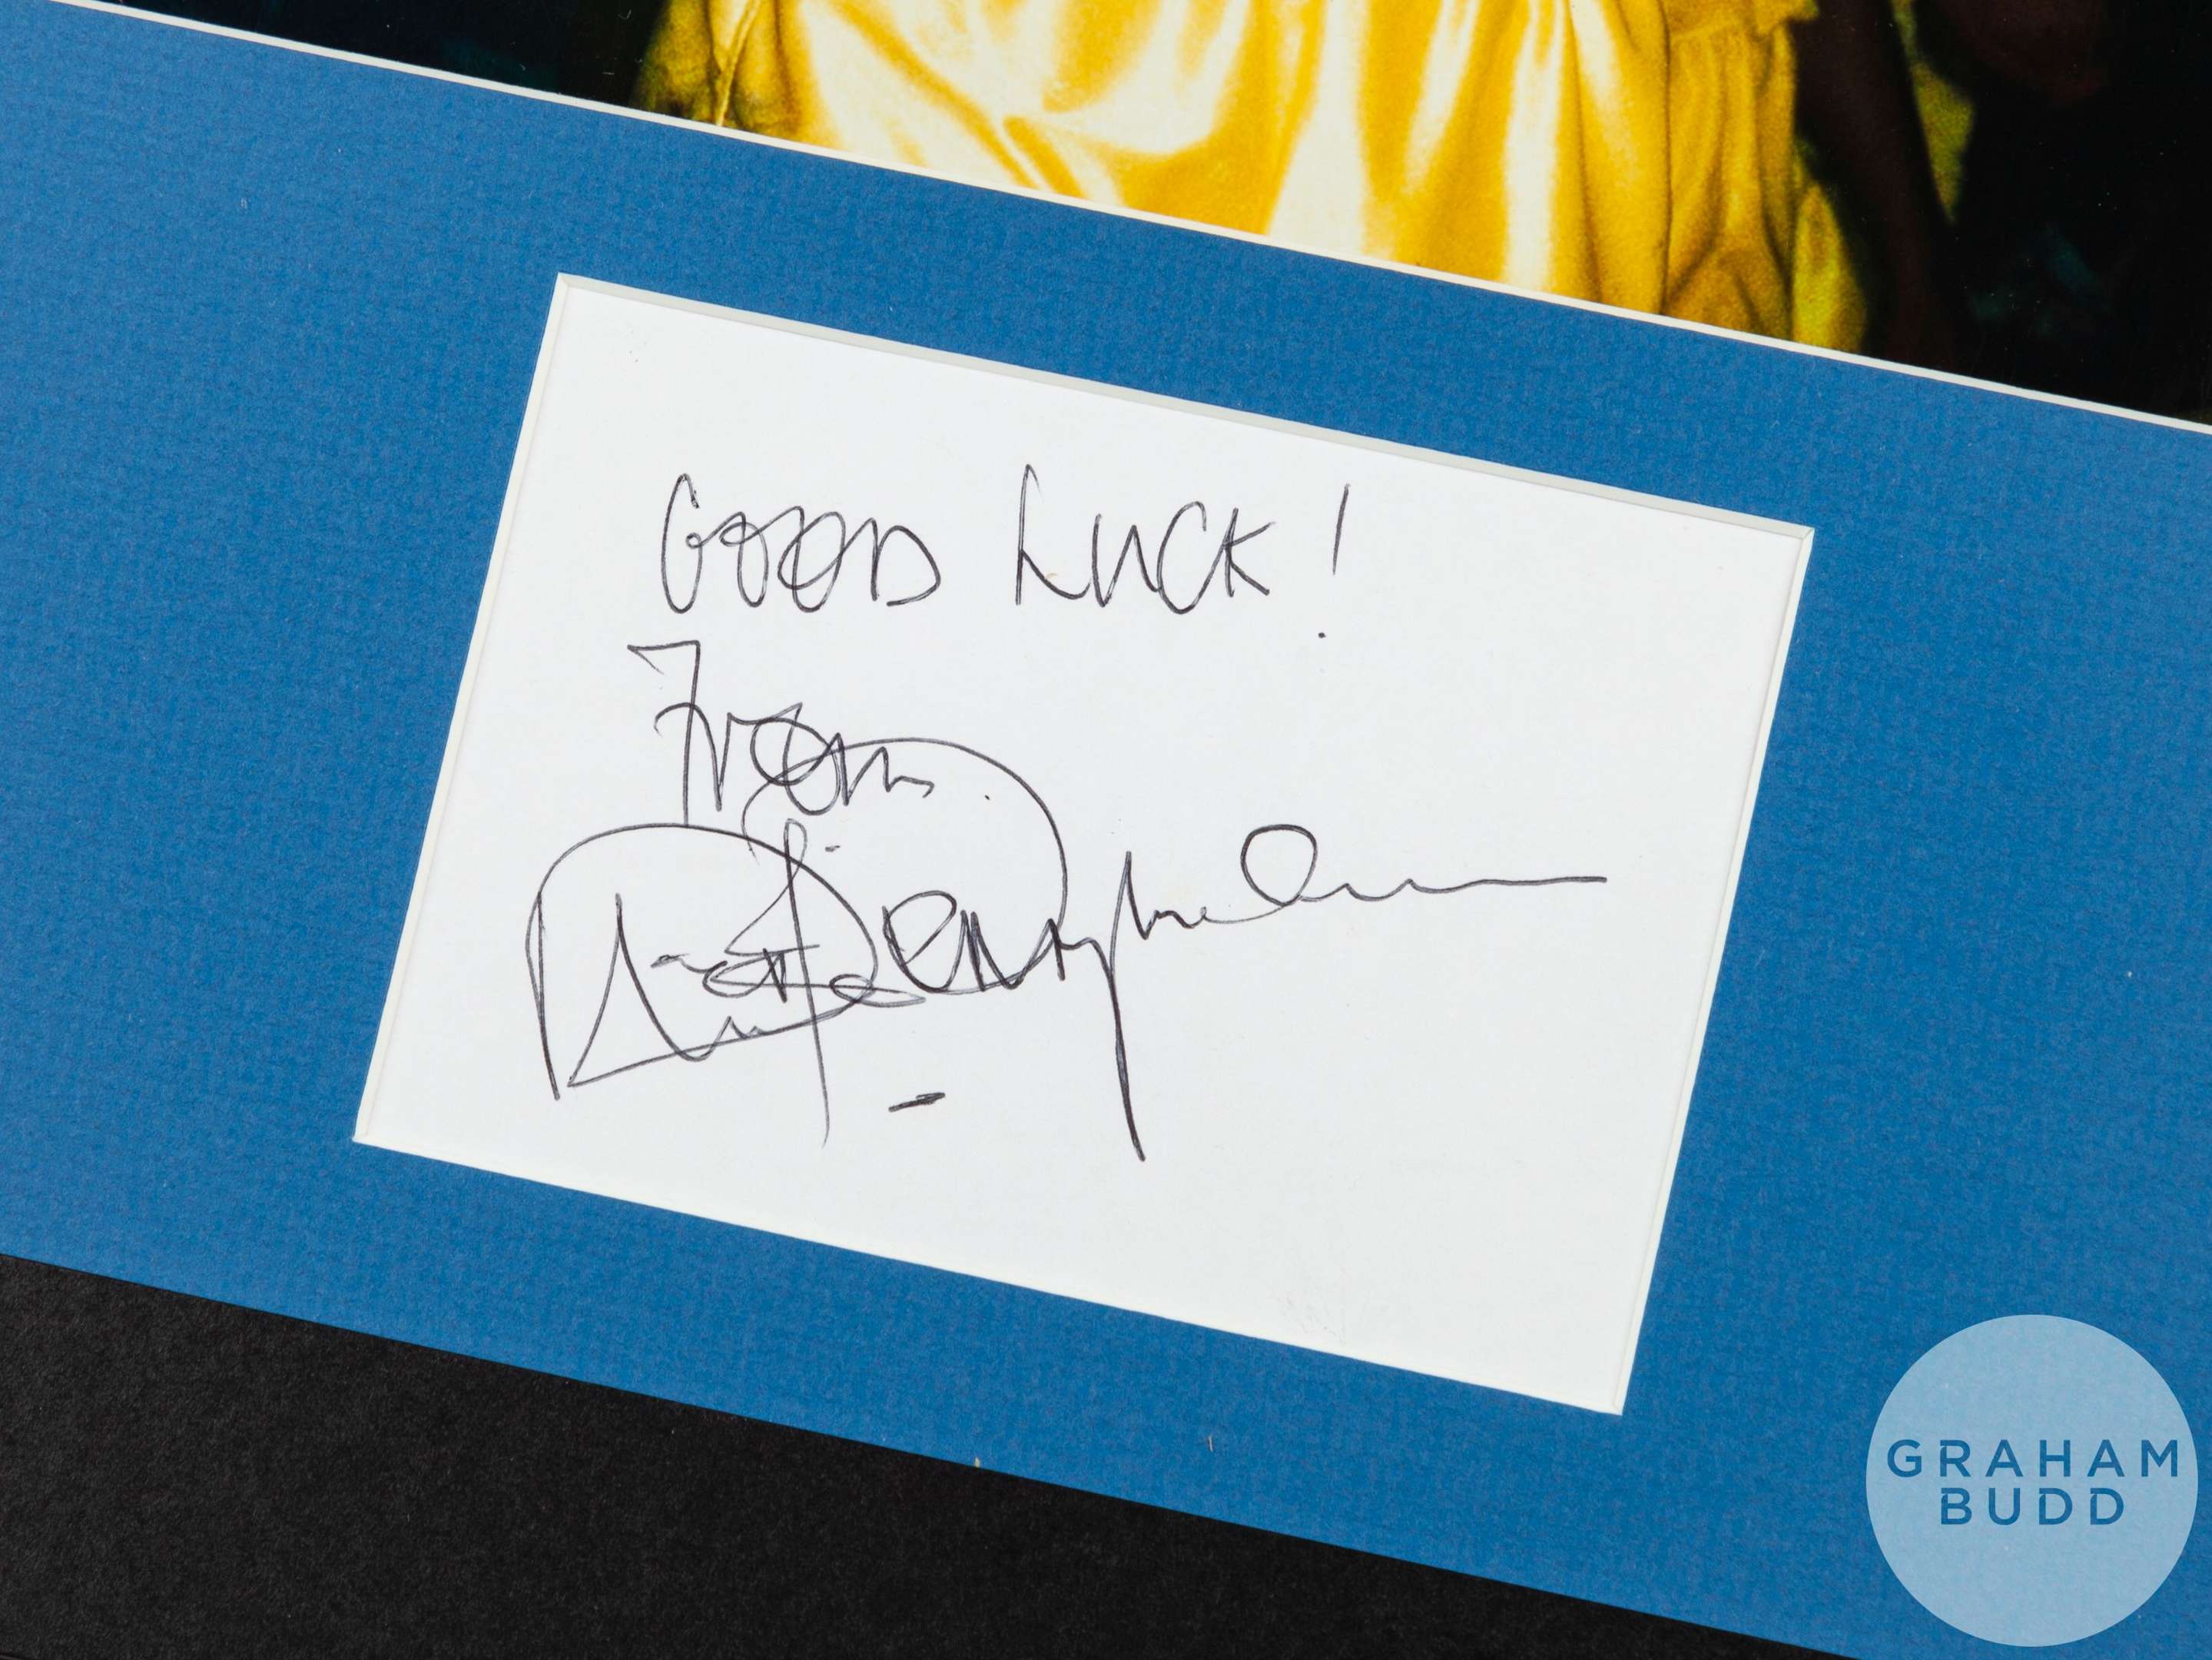 GOOD LUCK!
From
GRAHAM
BUDD